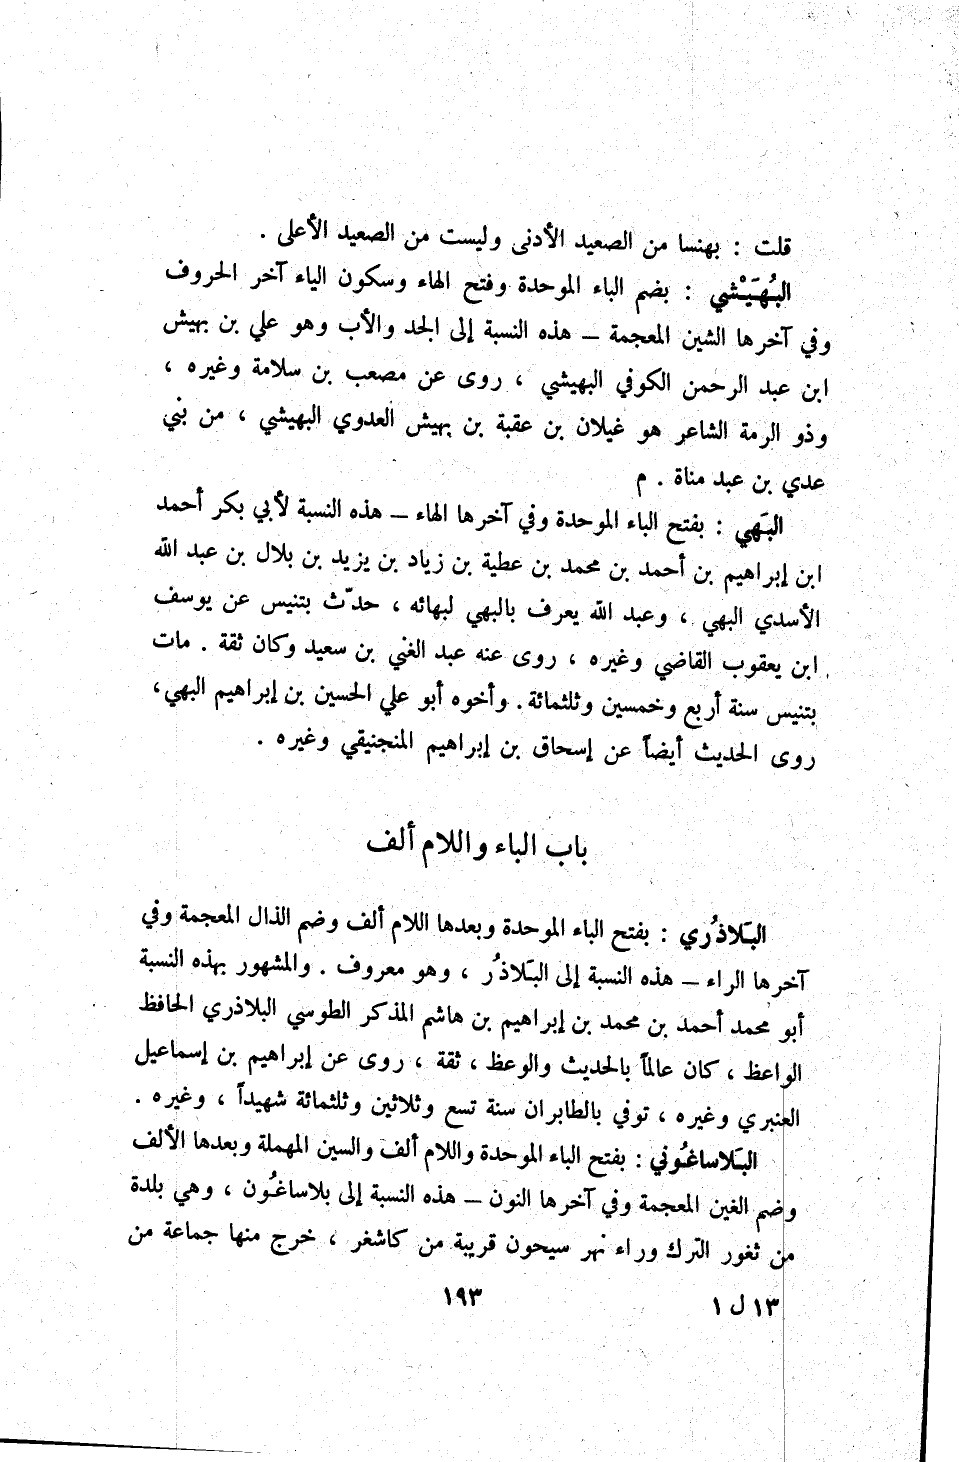 قلت : بهنسا من الصعيد الأدنى وليست من الصعيد الأعلى .
البُهَيْشي : بضم الباء الموحدة وفتح الهاء وسكون الياء آخر الحروف
وفي آخرها الشين المعجمة – هذه النسبة إلى الجد والأب وهو علي بن بهيش
ابن عبد الرحمن الكوفي البهيشي ، روى عن مصعب بن سلامة وغيره ،
وذو الرمة الشاعر هو غيلان بن عقبة بن بهيش العدوي البهيشي ، من بني
عدي بن عبد مناة . م
البَهي : بفتح الباء الموحدة وفي آخرها الهاء – هذه النسبة لأبي بكر أحمد
ابن إبراهيم بن أحمد بن محمد بن عطية بن زياد بن يزيد بن بلال بن عبد الله
الأسدي البهي ، وعبد الله يعرف بالبهي لبهائه ، حدّث بتنيس عن يوسف
ابن يعقوب القاضي وغيره ، روى عنه عبد الغني بن سعيد وكان ثقة . مات
بتنيس سنة أربع وخمسين وثلثمائة . وأخوه أبو علي الحسين بن إبراهيم البهي ،
روى الحديث أيضاً عن إسحاق بن إبراهيم المنجنيقي وغيره .
باب الباء واللام ألف
البَلاذُري : بفتح الباء الموحدة وبعدها اللام ألف وضم الذال المعجمة وفي
آخرها الراء – هذه النسبة إلى البَلاذُر ، وهو معروف . والمشهور بهذه النسبة
أبو محمد أحمد بن محمد بن إبراهيم بن هاشم المذكر الطوسي البلاذري الحافظ
الواعظ ، كان عالماً بالحديث والوعظ ، ثقة ، روى عن إبراهيم بن إسماعيل
العنبري وغيره ، توفي بالطابران سنة تسع وثلاثين وثلثمائة شهيداً ، وغيره .
البَلاساغُوني : بفتح الباء الموحدة واللام ألف والسين المهملة وبعدها الألف
وضم الغين المعجمة وفي آخرها النون – هذه النسبة إلى بلاساغُون ، وهي بلدة
من ثغور الترك وراء نهر سيحون قريبة من كاشغر ، خرج منها جماعة من
١٩٣
١٣ ل ١